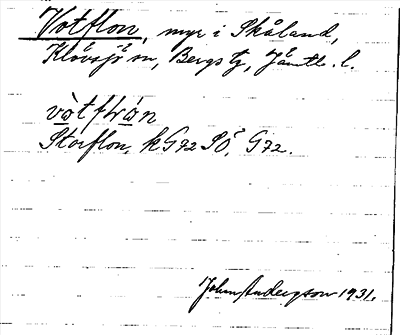 Votflon, myr i Skåland,
Klövsjö sn, Bergs tg, Jämtl. l.
vòtflón
Storflon, k G72 SÖ, G72.
John Andersson 1931.